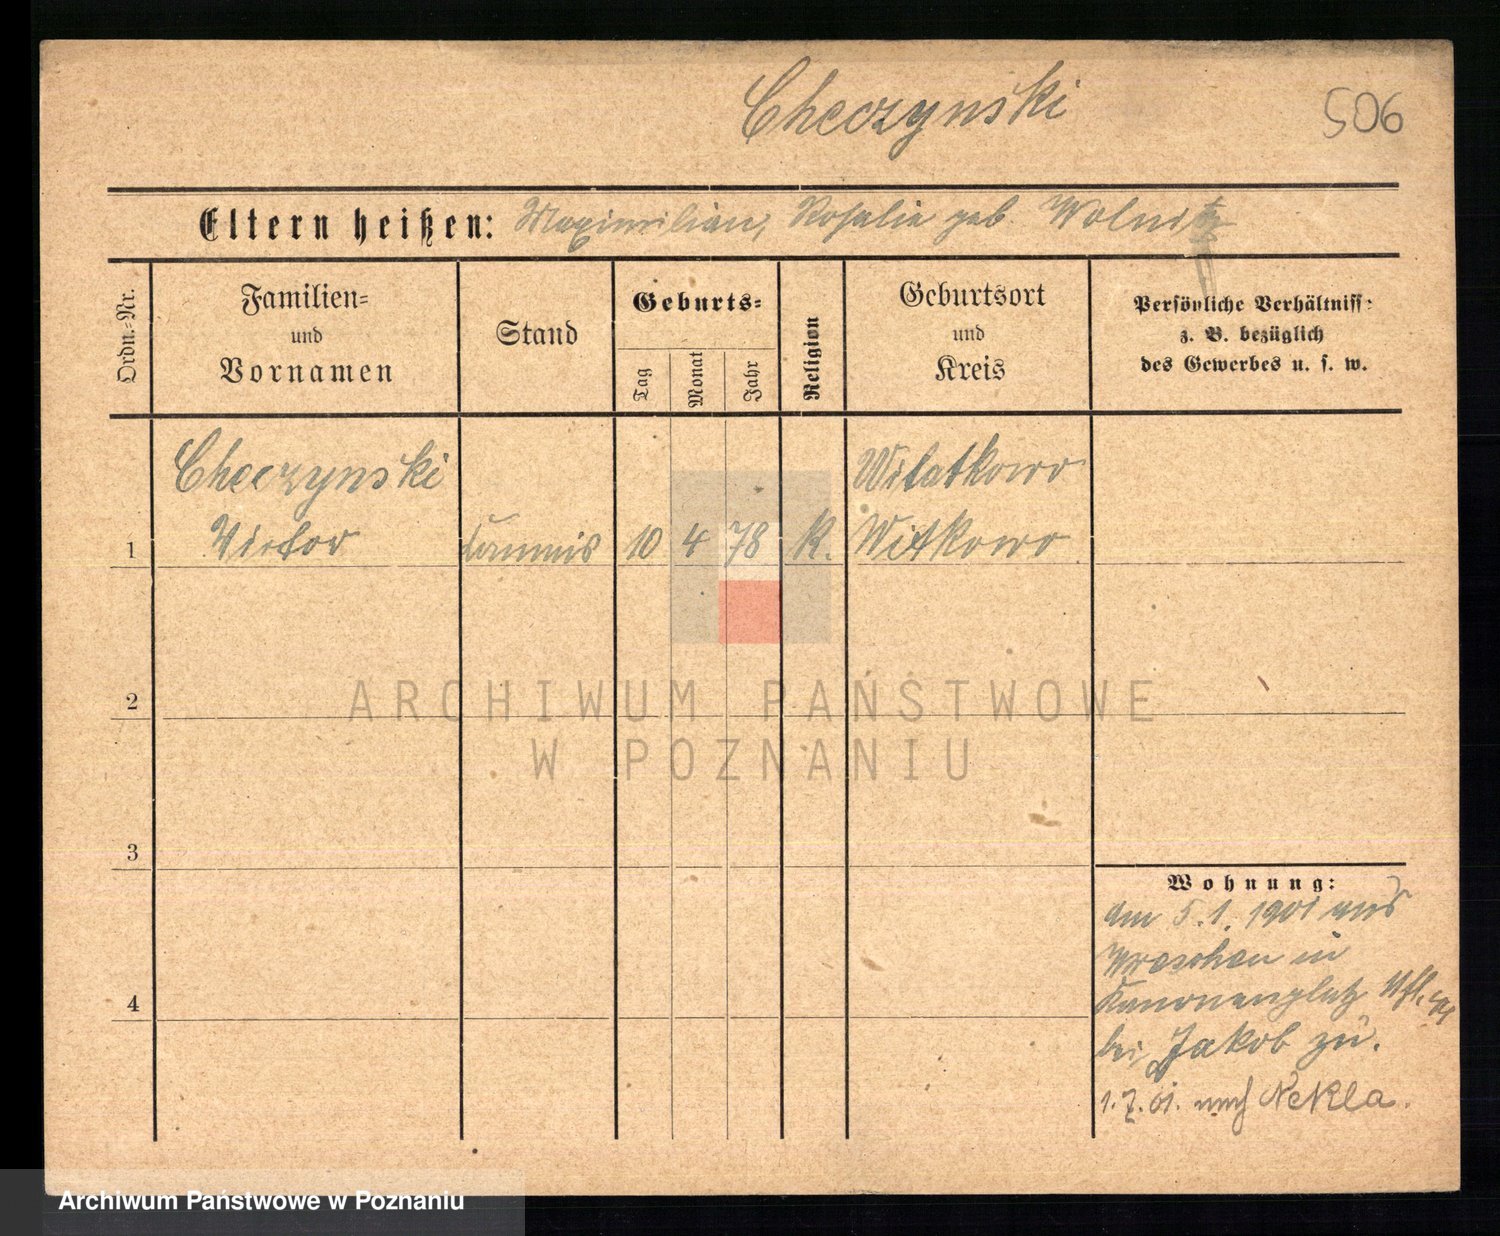 Checzynski
506
Eltern heißen: Maximilian, Rosalie geb. Wolnik
Ordn.-Nr.
Familien-
und
Vornamen
Stand
Geburts-
Tag
Monat
Jahr
Religion
Geburtsort
und
Kreis
Persönliche Verhältniss-
z. B. bezüglich
des Gewerbes u. s. w.
Checzynski
Witatkowo
1 Victor Commis 10 4 78 K. Witkowo
2
ARCHIWUM PAŃSTWOWE
W POZNANIU
3
Wohnung:
am 5.1.1901 aus
Wreschen in
Kanonenplatz
bei Jakob zu.
4
1.7.01. nach Nekla.
Archiwum Państwowe w Poznaniu